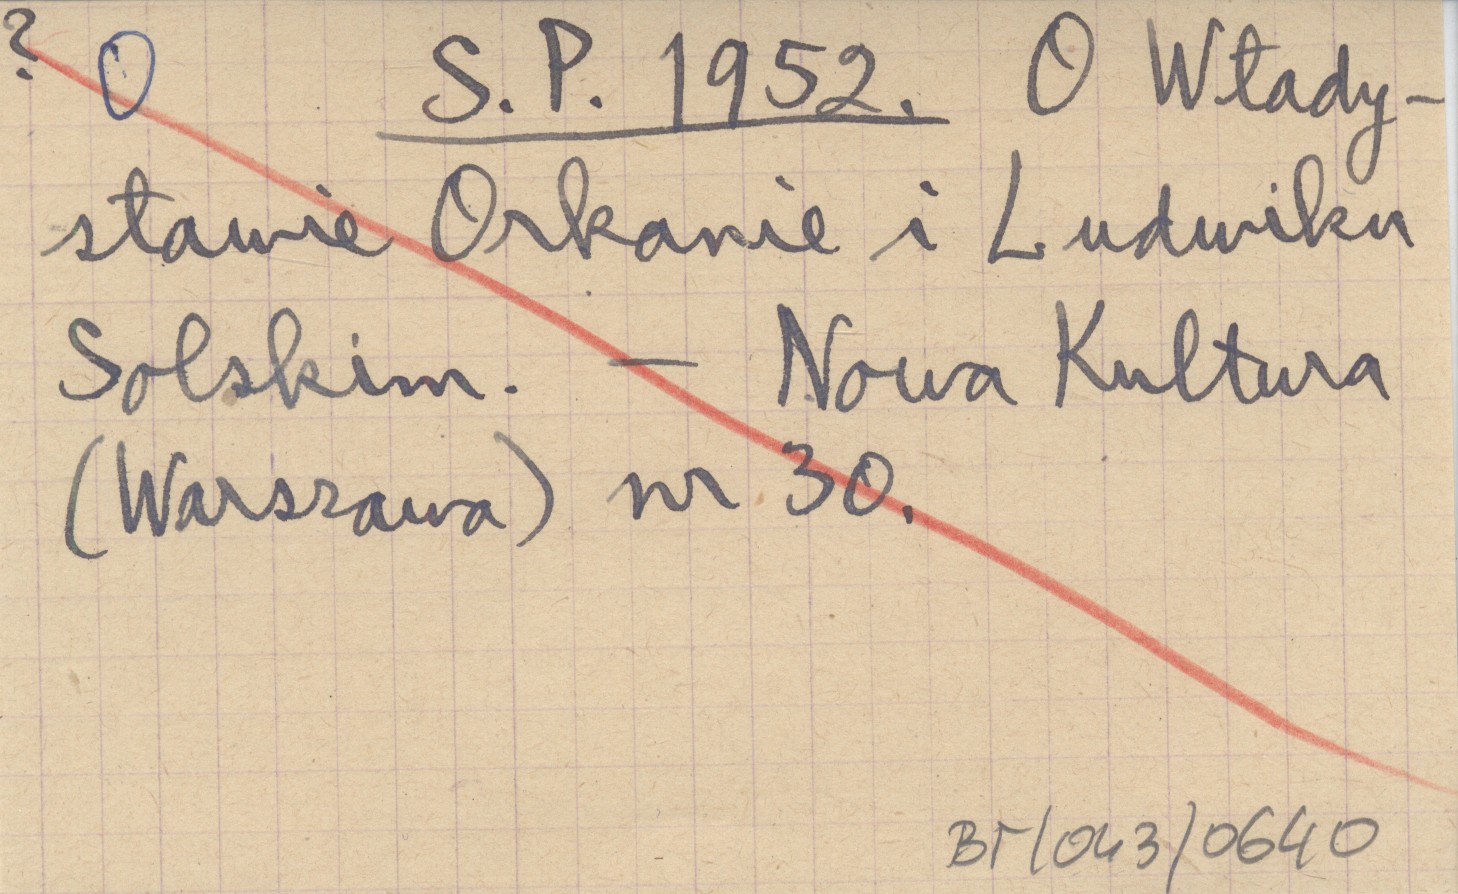 ? O S.P. 1952. O Włady-
sławie Orkanie i Ludwiku
Solskim. — Nowa Kultura
(Warszawa) nr 30.
BT/043/0640